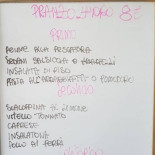 PRANZO 8€
PRIMI
PENNE ALLA PESCATORA
SEDANI SALSICCIA E
INSALATA DI RISO
PASTA ALL' O POMODORO
SECONDI
SCALOPPINA AL LIMONE
VITELLO TONNATO
CAPRESE
INSALATONA
POLLO AI FERRI